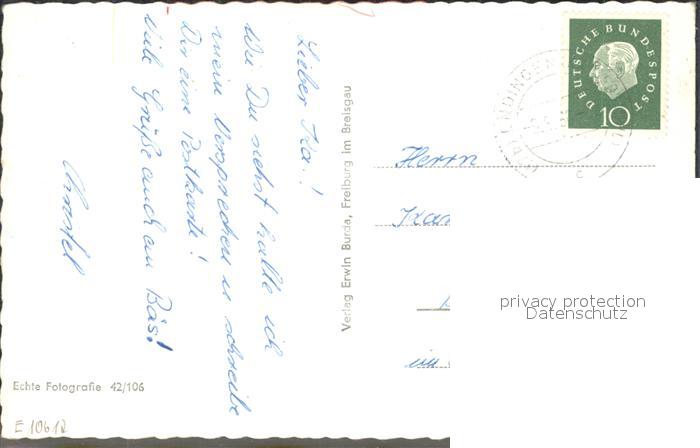 Lieber Ka..!
Wie Du siehst halte ich
mein Versprechen u schreibe
Dir eine Postkarte!
Viele Grüße auch an Bäs!
Echte Fotografie 42/106
E10612
Verlag Erwin Burda, Freiburg im Breisgau
DEUTSCHE BUNDESPOST
10
ENDINGEN
c
Herrn
privacy protection
Datenschutz